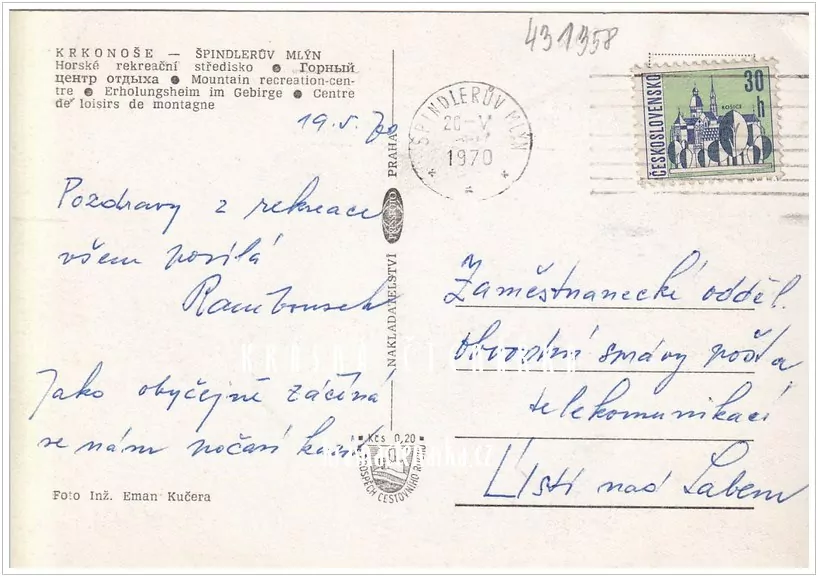 431358
KRKONOŠE — ŠPINDLERŮV MLÝN
Horské rekreační středisko ● Горный
центр отдыха ● Mountain recreation-cen-
tre ● Erholungsheim im Gebirge ● Centre
de loisirs de montagne
19. 5. 70
Pozdravy z rekreace
všem posílá
Rambousek
Jako obyčejně začíná
se nám počasí kazit
Foto Inž. Eman Kučera
NAKLADATELSTVÍ PRESSFOTO PRAHA
Kčs 0,20
VE PROSPĚCH CESTOVNÍHO RUCHU
ŠPINDLERŮV MLÝN
20.-V.
1970
ČESKOSLOVENSKO
30
h
KOŠICE
Zaměstnanecké odděl.
obvodní správy pošt a
telekomunikací
Ústí nad Labem